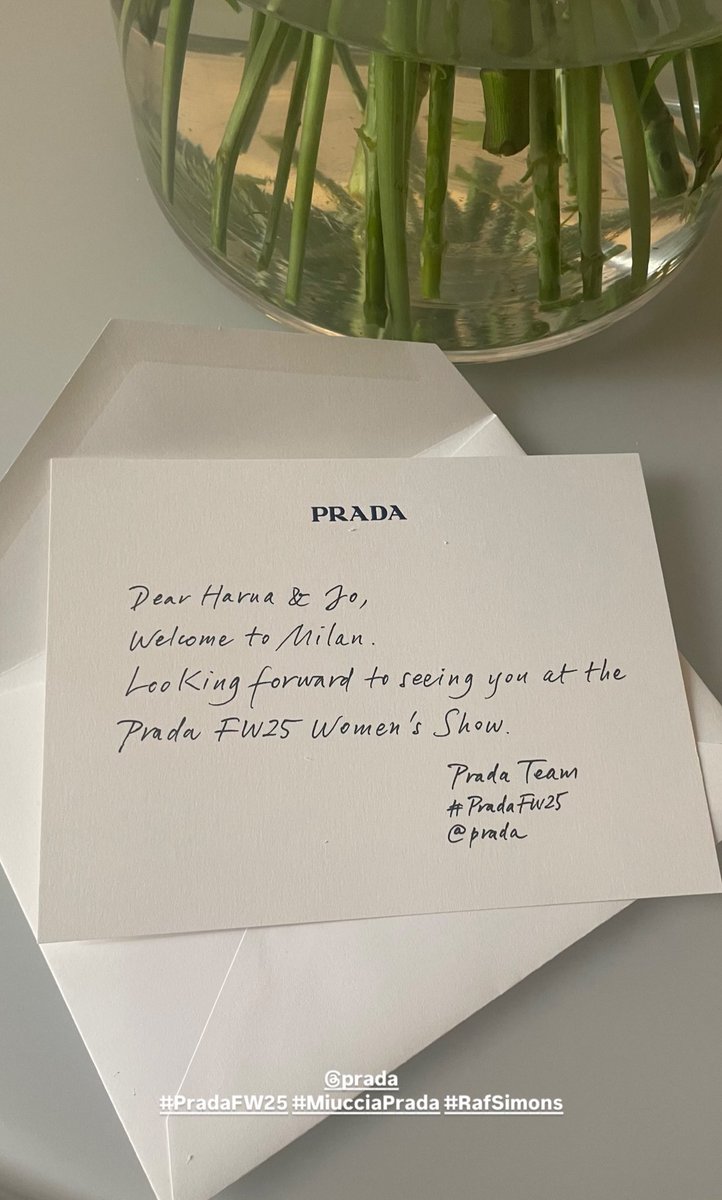 PRADA
Dear Harua & Jo,
Welcome to Milan.
Looking forward to seeing you at the
Prada FW25 Women's Show.
Prada Team
#PradaFW25
@prada
@prada
#PradaFW25 #MiucciaPrada #RafSimons